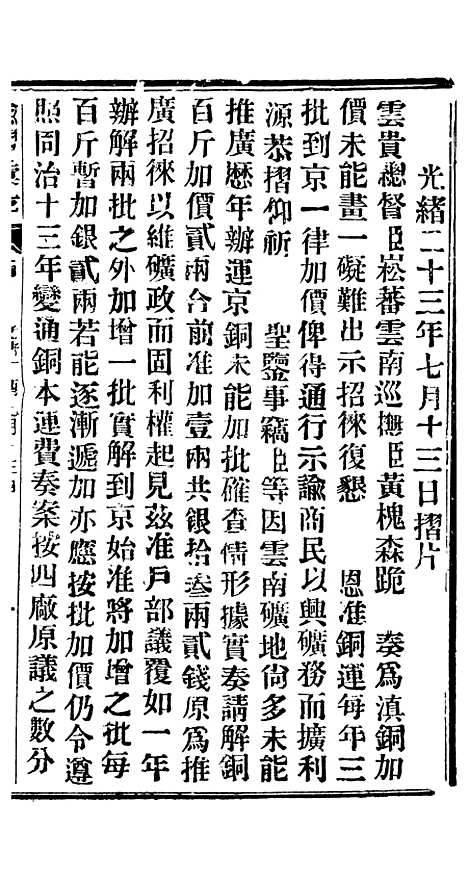 光緒二十三年七月十三日摺片
雲貴總督臣崧蕃雲南巡撫臣黃槐森跪 奏爲滇銅加
價未能畫一礙難出示招徠復懇 恩准銅運每年三
批到京一律加價俾得通行示諭商民以興礦務而擴利
源恭摺仰祈 聖鑒事竊臣等因雲南礦地尙多未能
推廣歷年辦運京銅未能加批確查情形據實奏請解銅
百斤加價貳兩合前准加壹兩共銀拾叁兩貳錢原爲推
廣招徠以維礦政而固利權起見茲准戶部議覆如一年
辦解兩批之外加增一批實解到京始准將加增之批每
百斤暫加銀貳兩若能逐漸遞加亦應按批加價仍令遵
照同治十三年變通銅本運費奏案按四廠原議之數分